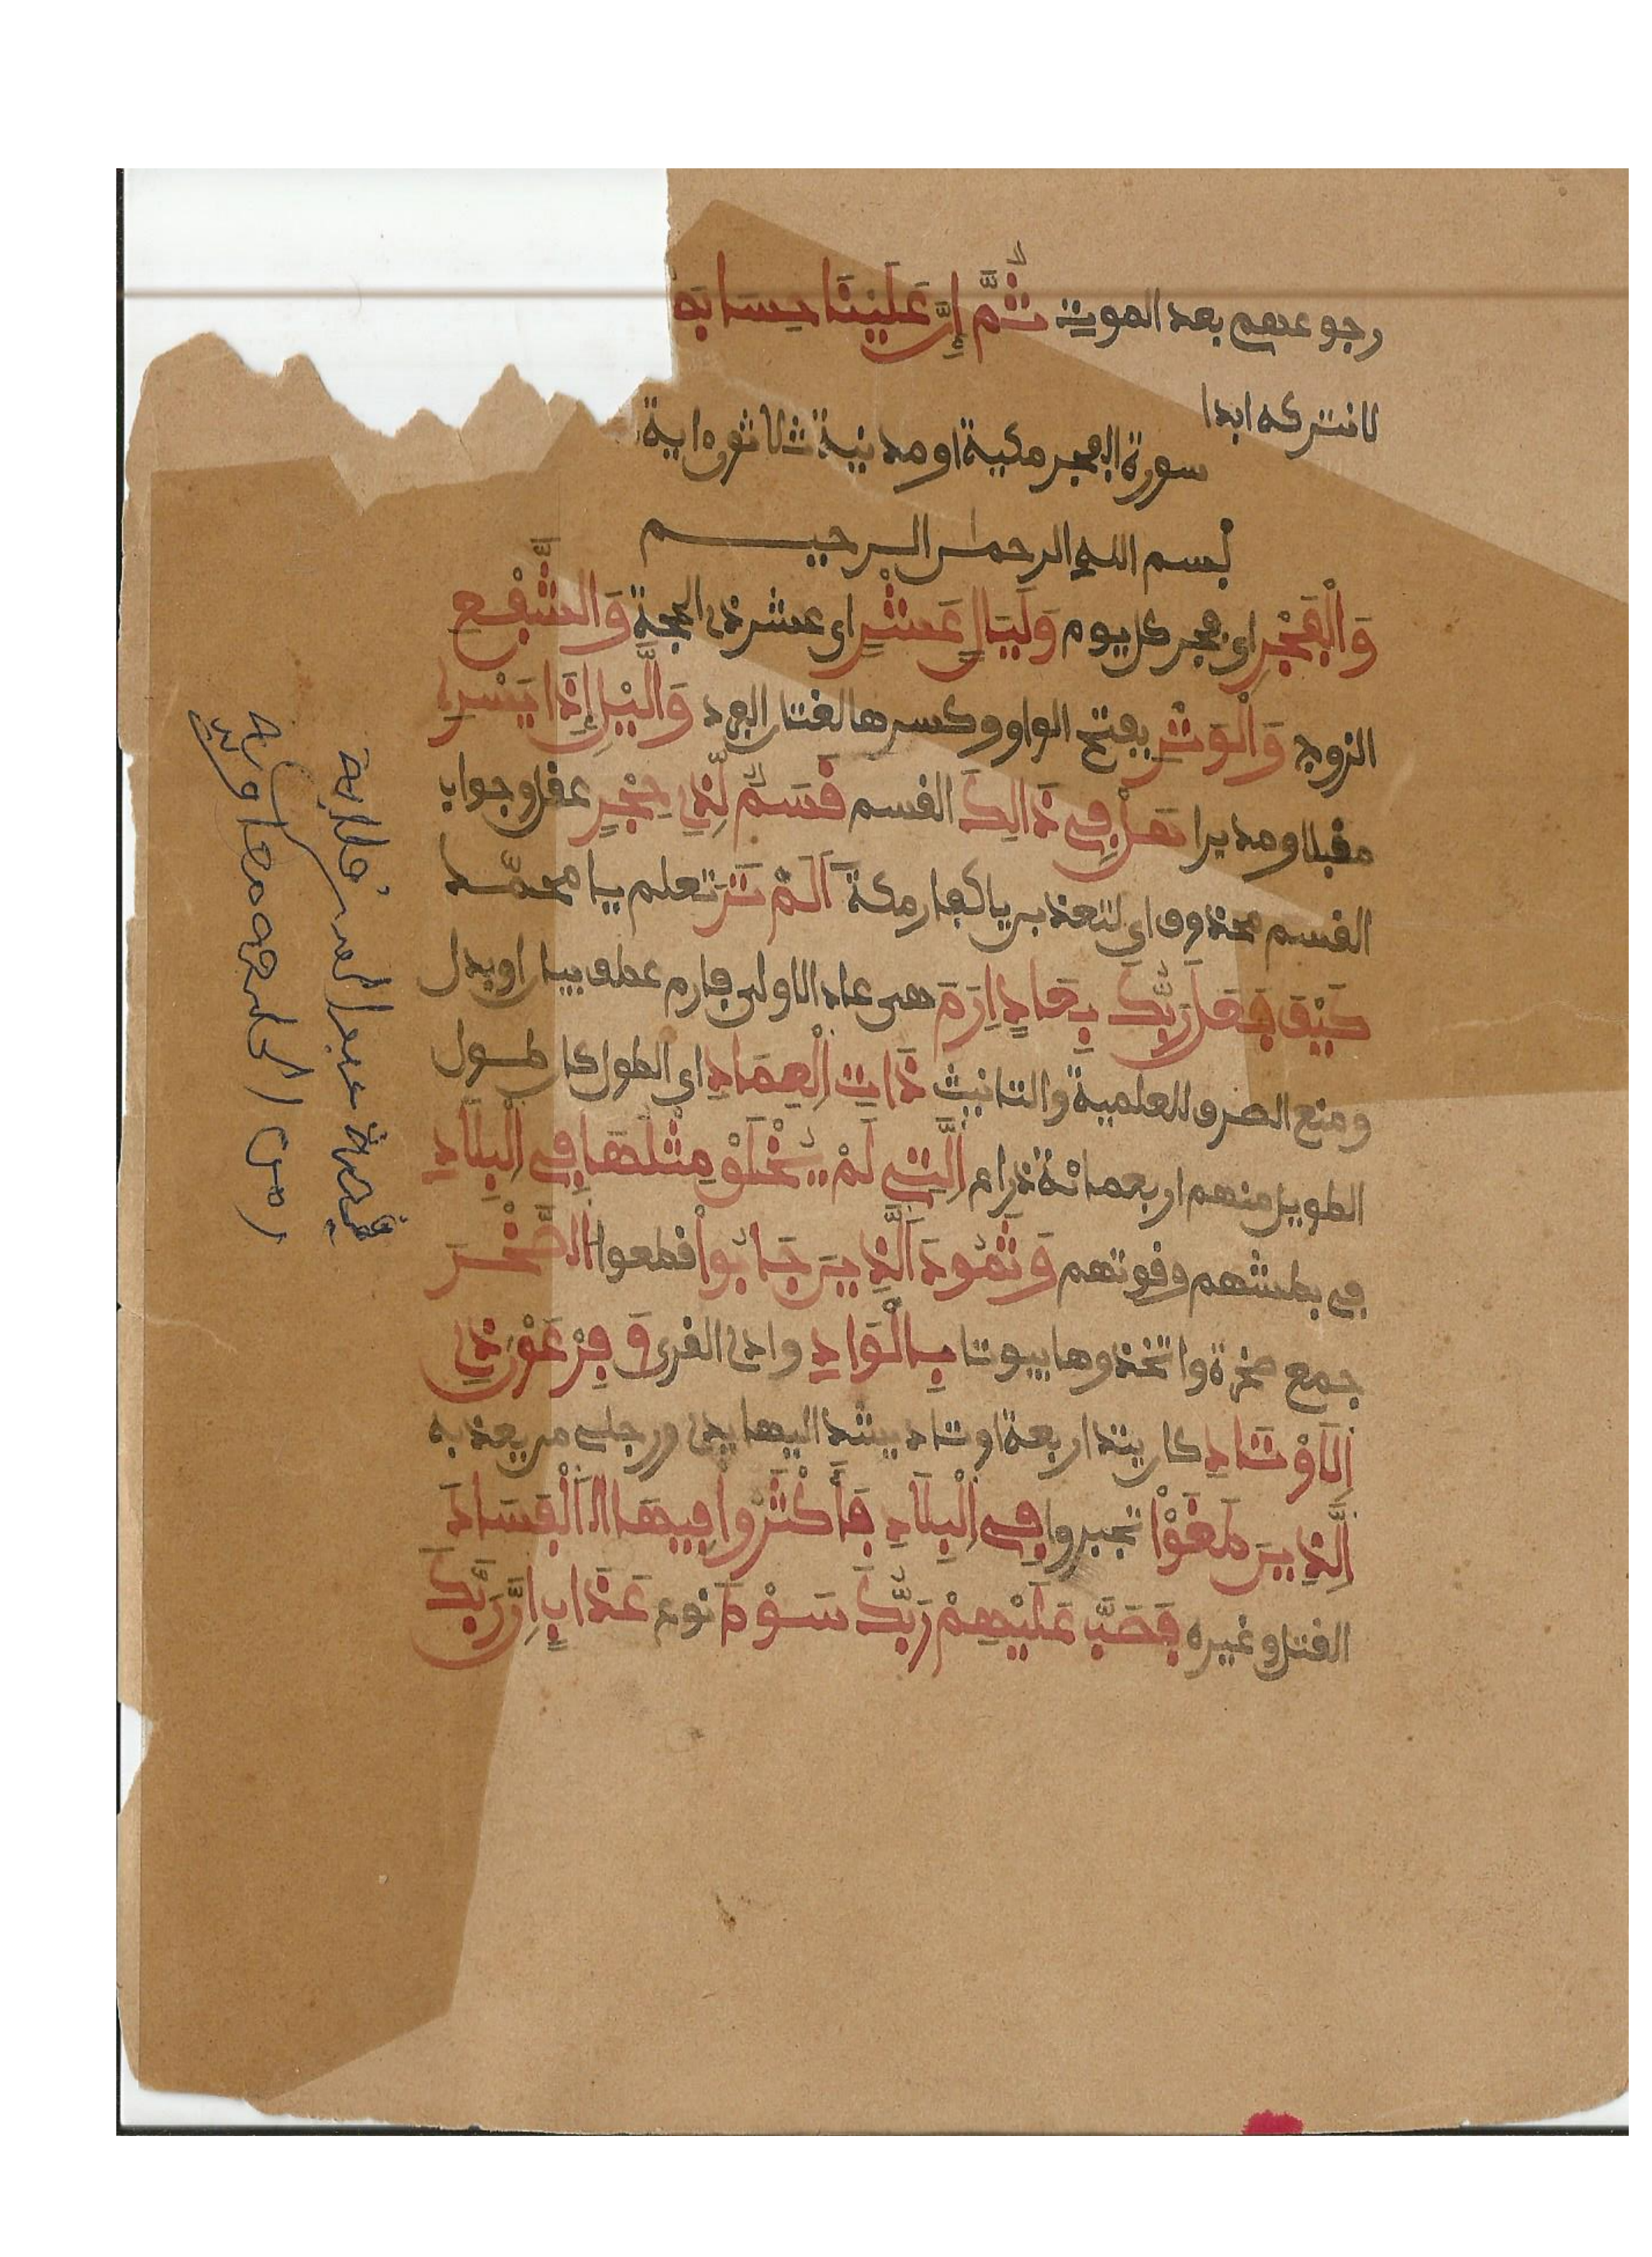 رجوعهم بعد الموت ثُمَّ إِنَّ عَلَيْنَا حِسَابَهُ
لا نتركه ابدا
سورة الفجر مكية او مدنية ثلاثون ءاية
بسم الله الرحمن الرحيم
وَالْفَجْرِ اى فجر كل يوم وَلَيَالٍ عَشْرٍ اى عشر ذى الحجة وَالشَّفْعِ
الزوج وَالْوَتْرِ بفتح الواو وكسرها لغتان الفرد وَالَّيْلِ إِذَا يَسْرِ
مقبلا ومدبرا هَلْ فِى ذَالِكَ القسم قَسَمٌ لِّذِى حِجْرٍ عقل وجواب
القسم محذوف اى لتعذبن يا كفار مكة أَلَمْ تَرَ تعلم يا محمّد
كَيْفَ فَعَلَ رَبُّكَ بِعَادٍ اِرَمَ هى عاد الاولى فارم عطف بيان او بدل
ومنع الصرف للعلمية والتانيث ذَاتِ اِلْعِمَادِ اى الطول كان طول
الطويل منهم اربعمائة ذرام اِلَّتِى لَمْ يُخْلَقْ مِثْلُهَا فِى اِلْبِلَادِ
فى بطشهم وقوتهم وَثَمُودَ اَلَّذِينَ جَابُواْ قطعوا اُلصَّخْرَ
جمع صخرة واتخذوها بيوتا بِالْوَادِ وادى القرى وَفِرْعَوْنَ ذِى
اِلَاوْتَادِ كان يتد اربعة اوتاد يشد اليها يدى ورجلى من يعذبه
اِلَّذِينَ طَغَوْاْ تجبروا فِى اِلْبِلَادِ فَأَكْثَرُواْ فِيهَا اَلْفَسَادَ
القتل وغيره فَصَبَّ عَلَيْهِمْ رَبُّكَ سَوْطَ نوع عَذَابٍ اِنَّ رَبَّكَ